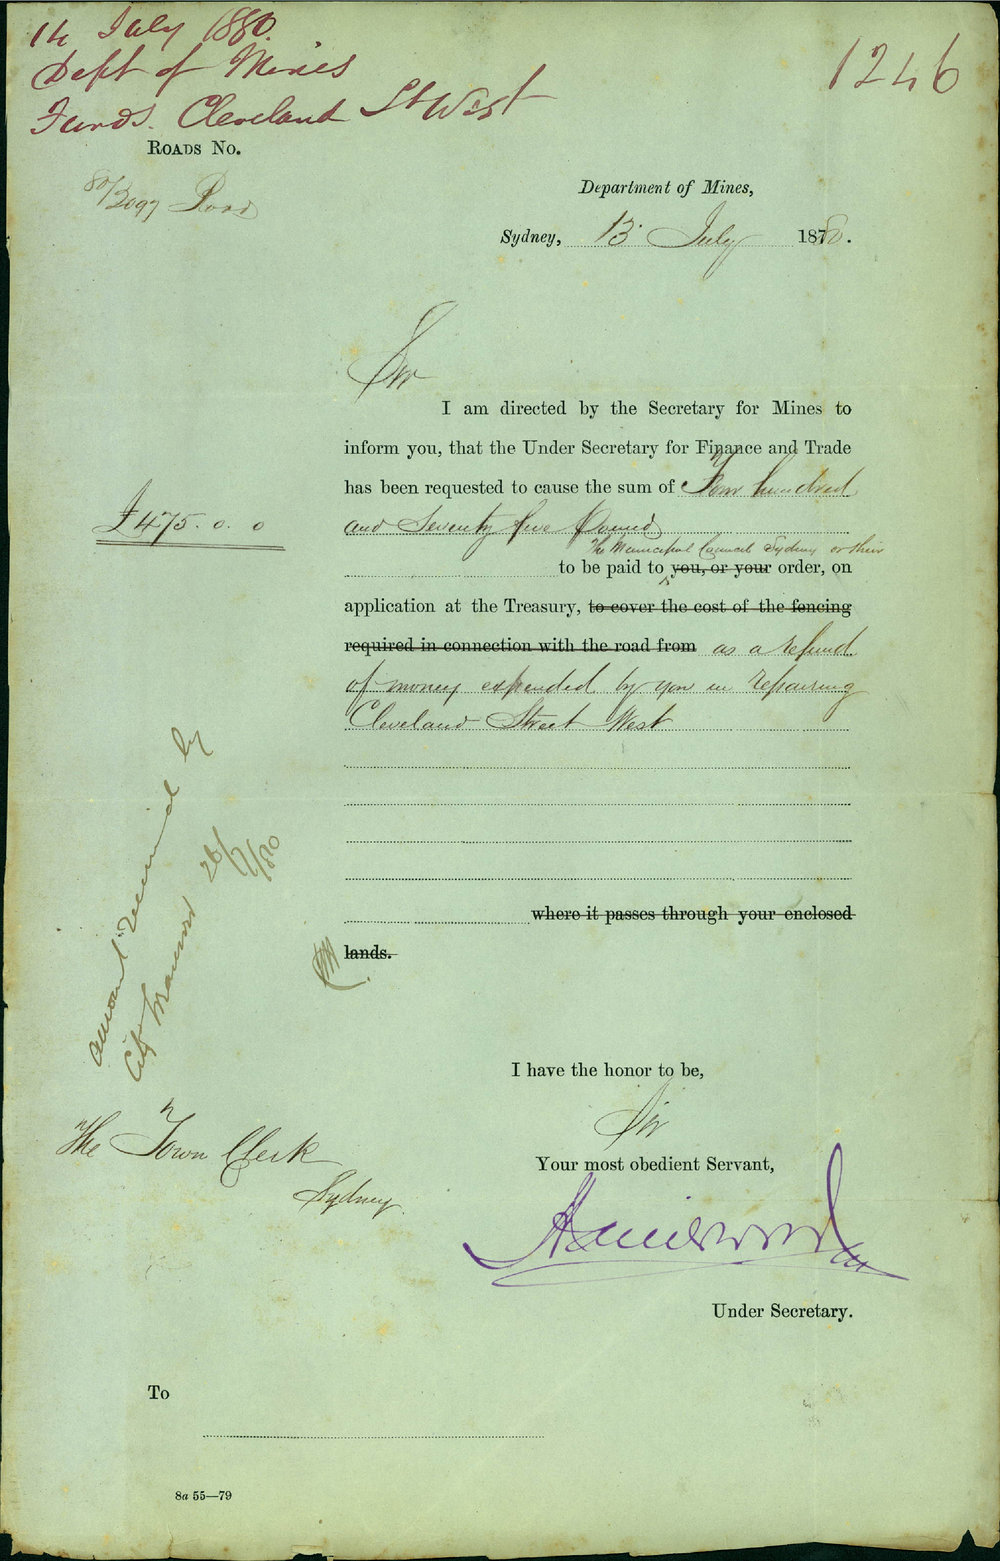 14 July 1880.
Dept of Mines
Funds. Cleveland St West
1246
ROADS No.
80/2097 Road
Department of Mines,
Sydney, 13 July 1880.
Sir
I am directed by the Secretary for Mines to
inform you, that the Under Secretary for Finance and Trade
has been requested to cause the sum of Four hundred
£475. 0. 0
and Seventy five Pound
The Municipal Council Sydney or their
to be paid to you, or your order, on
application at the Treasury, to cover the cost of the fencing
required in connection with the road from as a refund
of money expended by you in repairing
Cleveland Street West
where it passes through your enclosed
lands.
amount received by
City 26/7/80
I have the honor to be,
Sir
The Town Clerk
Sydney
Your most obedient Servant,
Under Secretary.
To
8a 55—79